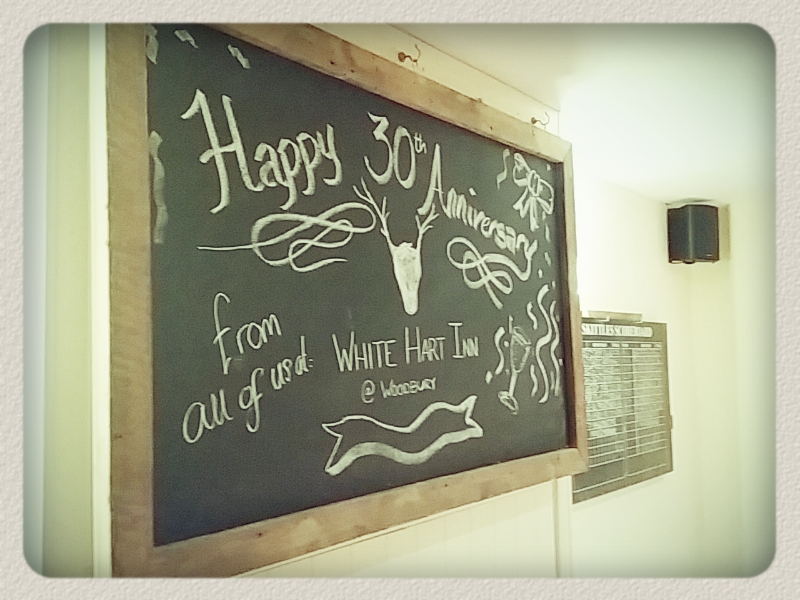 Happy 30th Anniversary
from
all of us at:
WHITE HART INN
@ WOODBURY